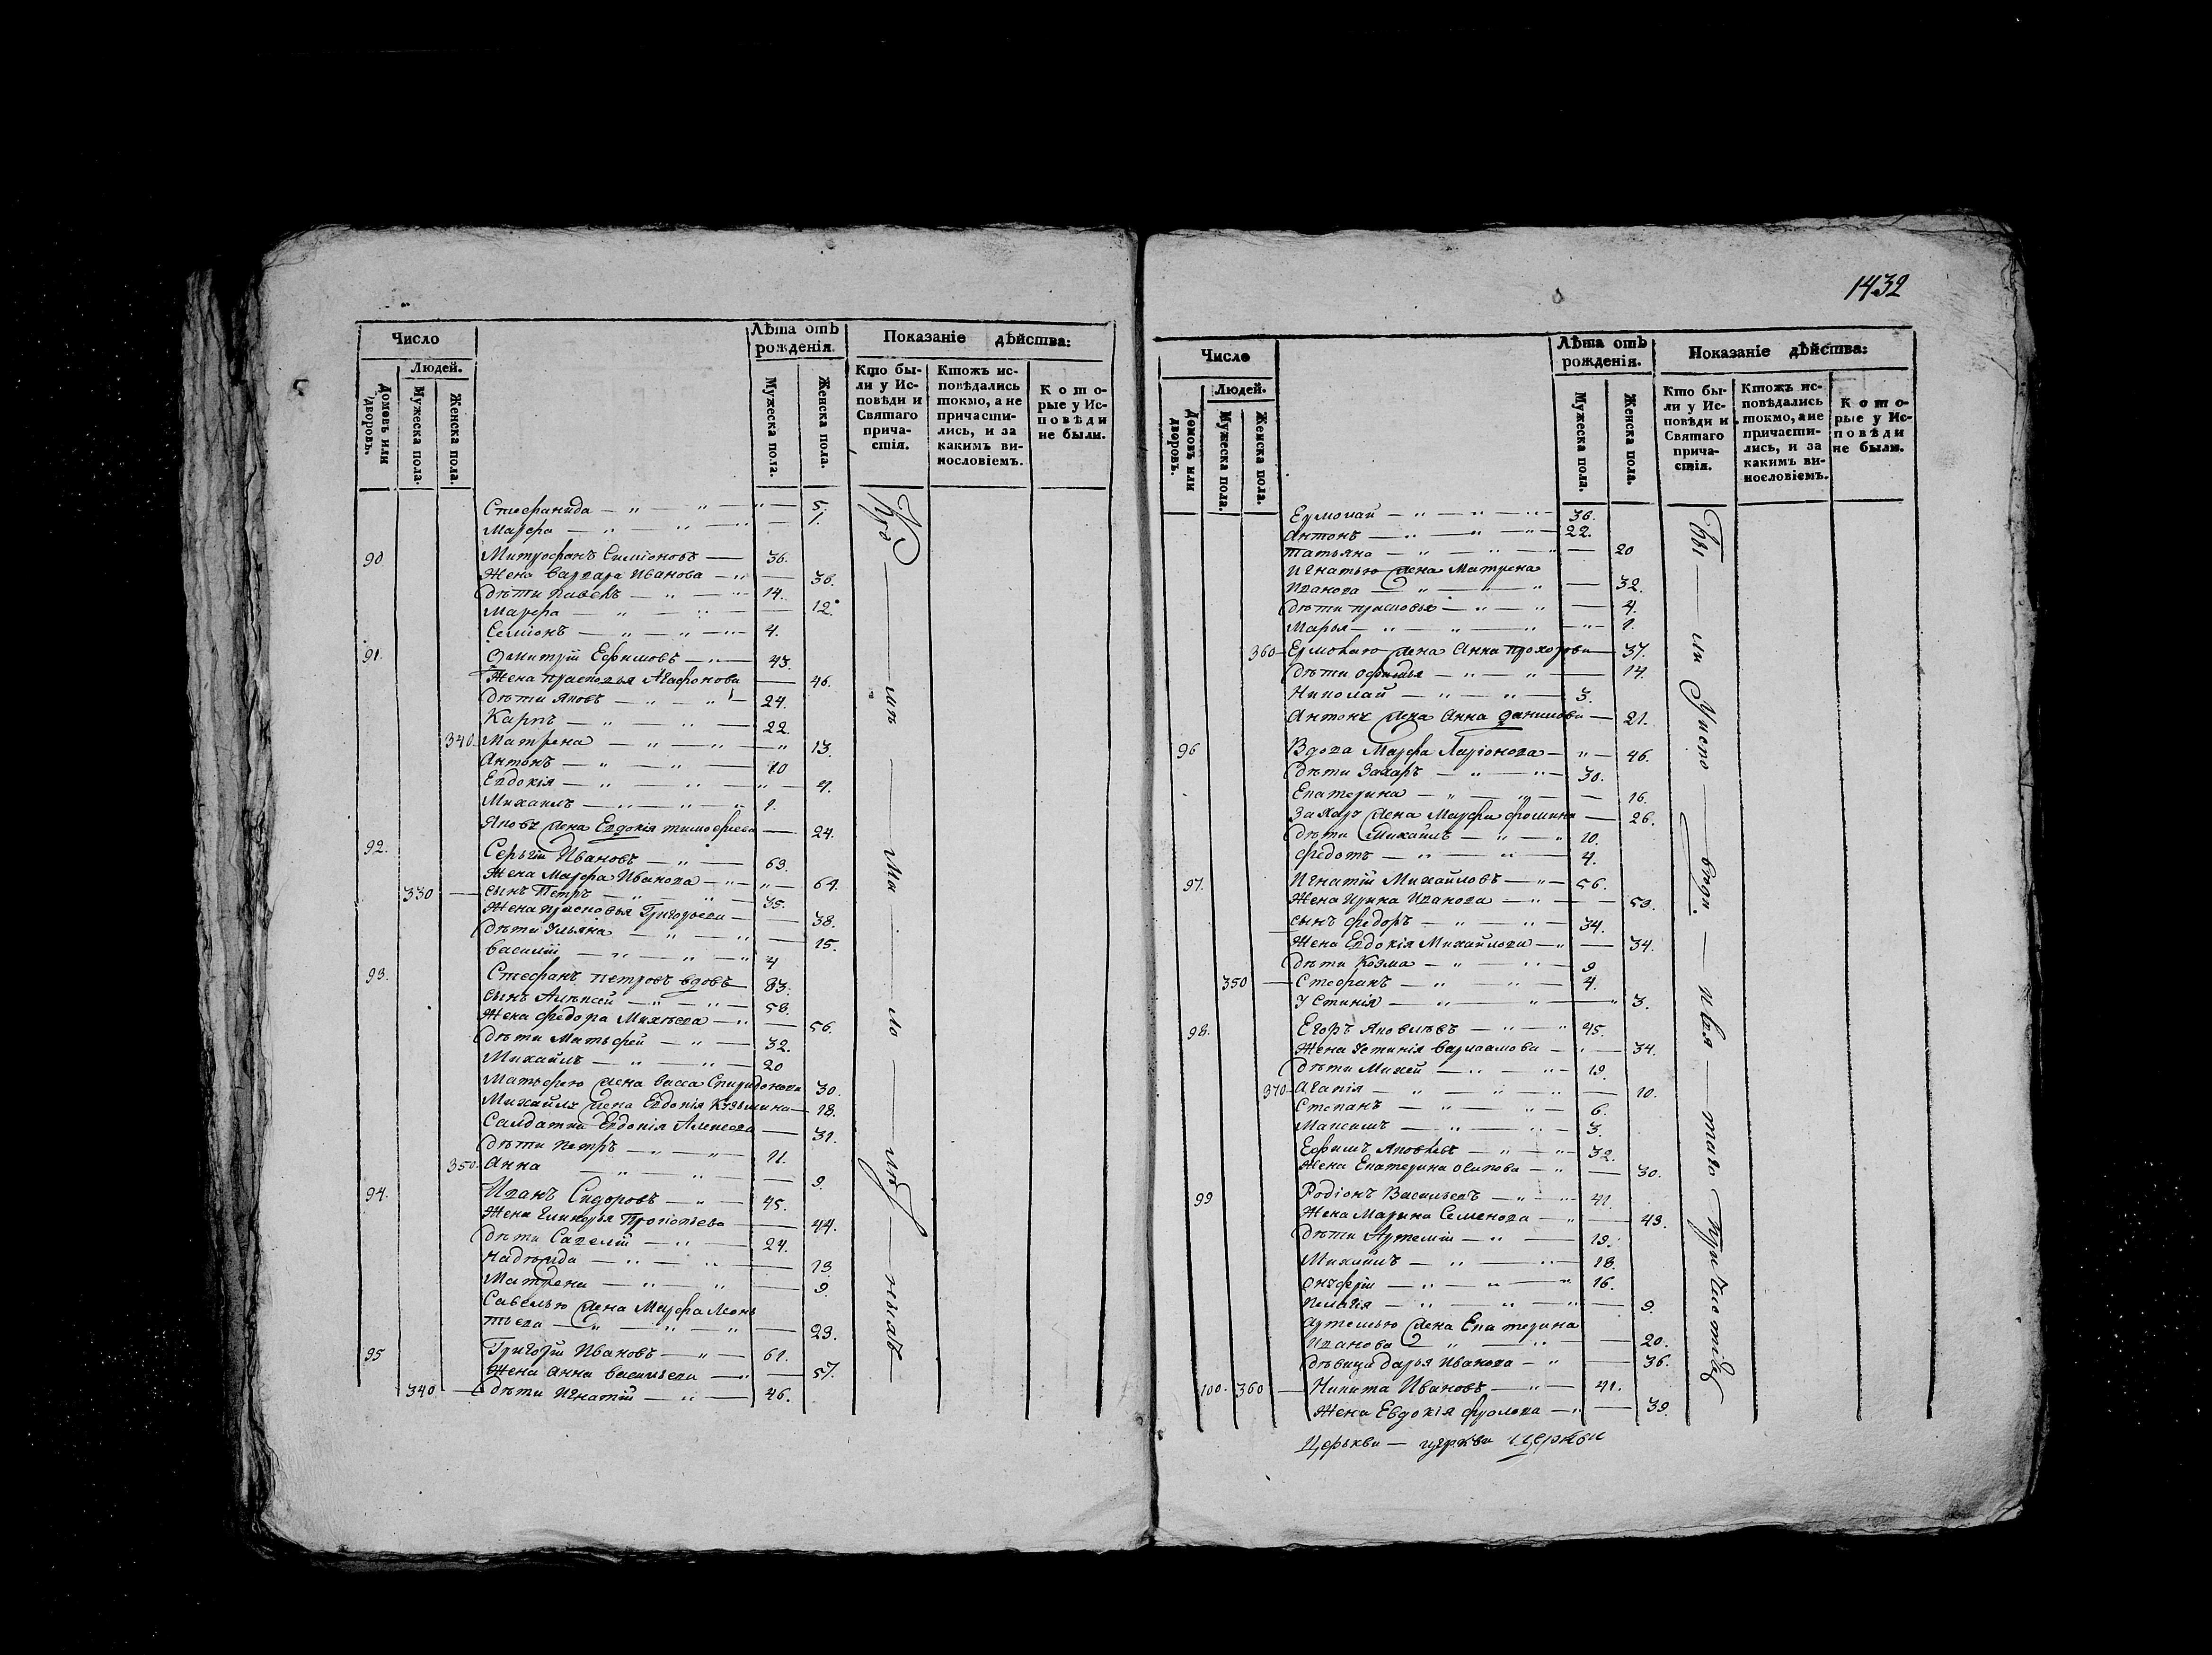 Число
Людей.
Домовъ или дворовъ.
Мужеска пола.
Женска пола.
Лѣта отъ рожденія.
Мужеска пола.
Женска пола.
Показаніе дѣйства:
Кто были у Исповѣди и Святаго причастія.
Ктожъ исповѣдались токмо, а не причастились, и за какимъ винословіемъ.
Которые у Исповѣди не были.
Стефанида — " — " — " — 5.
Марфа — " — " — " — 1.
90 Митрофанъ Симіоновъ — 36.
Жена Варвара Иванова — " — 36.
дѣти Павелъ — " — " 14.
Марфа — " — " — 12.
Семіонъ — " — " — " 4.
91. Димитрій Ефимовъ — " — 43.
Жена Прасковья Агафонова — 46.
дѣти Яковъ — " — " — 24.
Карпъ — " — " — 22.
340 Матрена — " — " — " 13.
Антонъ — " — " — 10
Евдокія — " — " — " — 4.
Михаилъ — " — " — " 1.
Яковъ жена Евдокія Тимофеева — 24.
92. Сергій Ивановъ — " — 63.
Жена Марфа Иванова — " — " — 64.
330 — сынъ Петръ — " — " — 35.
Жена Прасковья Григорьева — 38.
дѣти Ульяна — " — " — 15.
Василій — " — " — " 4
93. Стефанъ Петровъ вдовъ — 83.
сынъ Алексей — " — " — 58.
Жена Федора Михеева — " — 56.
дѣти Матьфей — " — 32.
Михайлъ — " — " — 20
Матьфею жена Васса Спиридонова 30.
Михайлъ жена Евдокія Кузьмина — 18.
Салдатка Евдокія Алексеева — 31.
дѣти Петръ — " — " — 11.
350. Анна — " — " — 9.
94. Иванъ Сидоровъ — " — 45.
Жена Гликерья Прокопьева — 44.
дѣти Савелій — " — 24.
Надежда — " — " — 13.
Матрена — " — " — 9.
Савелью жена Марфа Леонь
тьева — " — " — " — 23.
95 Григорій Ивановъ — " — 61.
Жена Анна Васильева — " — 57.
340 — дѣти Игнатій — " — 46.
1432
Число
Людей.
Домовъ или дворовъ.
Мужеска пола.
Женска пола.
Лѣта отъ рожденія.
Мужеска пола.
Женска пола.
Показаніе дѣйства:
Кто были у Исповѣди и Святаго причастія.
Ктожъ исповѣдались токмо, а не причастились, и за какимъ винословіемъ.
Которые у Исповѣди не были.
Ермолай — " — " — " 36.
Антонъ — " — " — " — 22.
Татьяна — " — " — " — 20
Игнатью жена Матрена
Иванова — " — " — 32.
дѣти Прасковья — " — " — 4.
Марья — " — " — " — " 1.
360 — Ермолаю жена Анна Прохорова — 37.
дѣти Офимья — " — " — 14.
Николай — " — " — 3.
Антонъ жена Анна Данилова — 21.
96 Вдова Марфа Ларіонова — " — 46.
дѣти Захаръ — " — " — 30.
Екатерина — " — " — 16.
Захаръ жена Марфа Фомина — 26.
дѣти Михайлъ — " — " 10.
Федотъ — " — " — 4.
97. Игнатій Михайловъ — " — 56.
Жена Ирина Иванова — " — 53.
сынъ Федоръ — " — " — 34.
Жена Евдокія Михайлова — " — 34.
дѣти Козма — " — " — 9
350 — Стефанъ — " — " — 4.
Устинія — " — " — " 3.
98. Егоръ Яковлевъ — " — " 45.
Жена Устинія Варлаамова — " — 34.
дѣти Михей — " — " — 19.
370 — Агапія — " — " — " — 10.
Степанъ — " — " — 6.
Максимъ — " — " — 3.
Ефимъ Яковлевъ — " — " — 32.
Жена Екатерина Осипова — " — 30.
99 Родіонъ Васильевъ — " — " 41.
Жена Марина Семенова — " — 43.
дѣти Артемій — " — 19.
Михайлъ — " — " — 18.
Онуфрій — " — " — " 16.
Пелагія — " — " — " — 9.
Артемью жена Екатерина
Иванова — " — " — 20.
дѣвица Дарья Иванова — " — 36.
100. 360 — Никита Ивановъ — " — 41.
Жена Евдокія Фролова — " — 39.
Церькви — церкви церкви